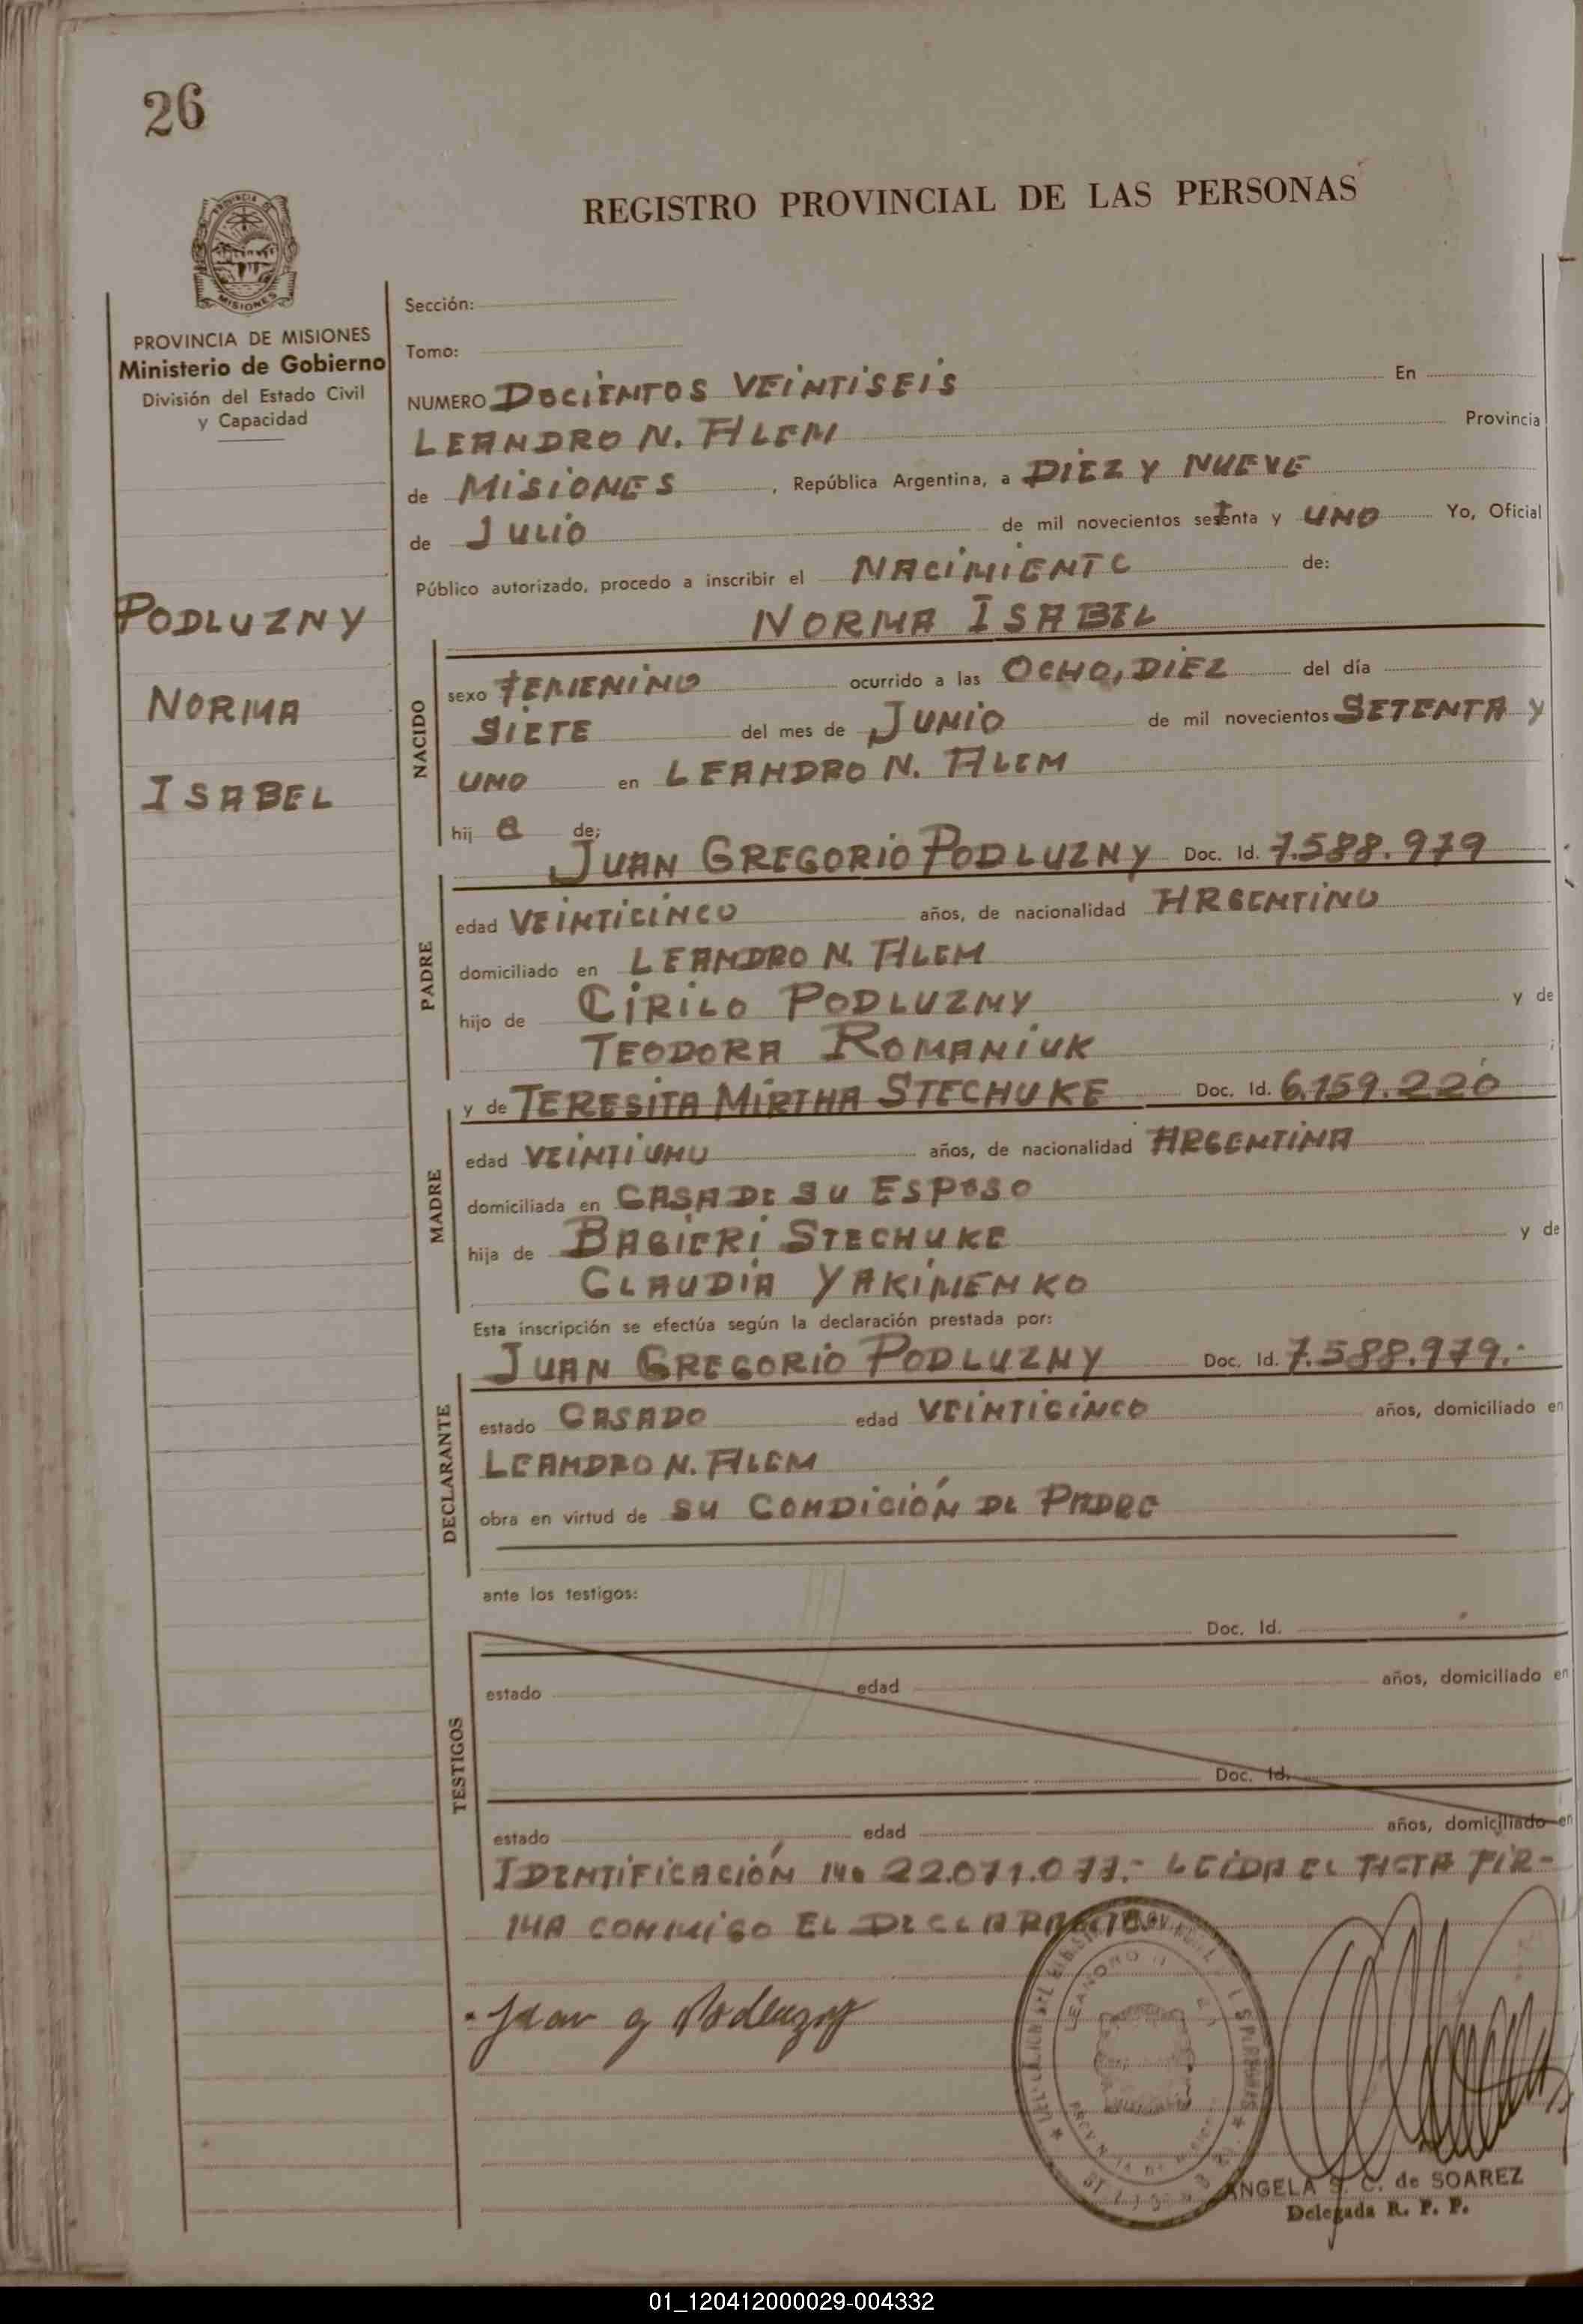 26
REGISTRO PROVINCIAL DE LAS PERSONAS
MISIONES
PROVINCIA DE MISIONES
Ministerio de Gobierno
División del Estado Civil
y Capacidad
PODLUZNY
NORMA
ISABEL
Sección:
Tomo:
NUMERO DOCIENTOS VEINTISEIS En
LEANDRO N. ALEM Provincia
de MISIONES, República Argentina, a DIEZ Y NUEVE
de JULIO de mil novecientos setenta y UNO Yo, Oficial
Público autorizado, procedo a inscribir el NACIMIENTO de:
NORMA ISABEL
NACIDO
sexo FEMENINO ocurrido a las OCHO, DIEZ del día
SIETE del mes de JUNIO de mil novecientos SETENTA Y
UNO en LEANDRO N. ALEM
hij a de:
JUAN GREGORIO PODLUZNY Doc. Id. 7.588.979
PADRE
edad VEINTICINCO años, de nacionalidad ARGENTINO
domiciliado en LEANDRO N. ALEM
hijo de CIRILO PODLUZNY y de
TEODORA ROMANIUK
y de TERESITA MIRTHA STECHUKE Doc. Id. 6.159.220
MADRE
edad VEINTIUNO años, de nacionalidad ARGENTINA
domiciliada en CASA DE SU ESPOSO
hija de STECHUKE y de
CLAUDIA YAKIMENKO
Esta inscripción se efectúa según la declaración prestada por:
JUAN GREGORIO PODLUZNY Doc. Id. 7.588.979.-
DECLARANTE
estado CASADO edad VEINTICINCO años, domiciliado en
LEANDRO N. ALEM
obra en virtud de SU CONDICIÓN DE PADRE
ante los testigos:
Doc. Id.
TESTIGOS
estado edad años, domiciliado en
Doc. Id.
estado edad años, domiciliado en
IDENTIFICACIÓN No 22.071.077.- LEIDA EL ACTA FIR-
MA CONMIGO EL DECLARANTE
Juan G Podluzny
LEANDRO N.
ANGELA S. C. de SOAREZ
Delegada R. P. P.
01_120412000029-004332